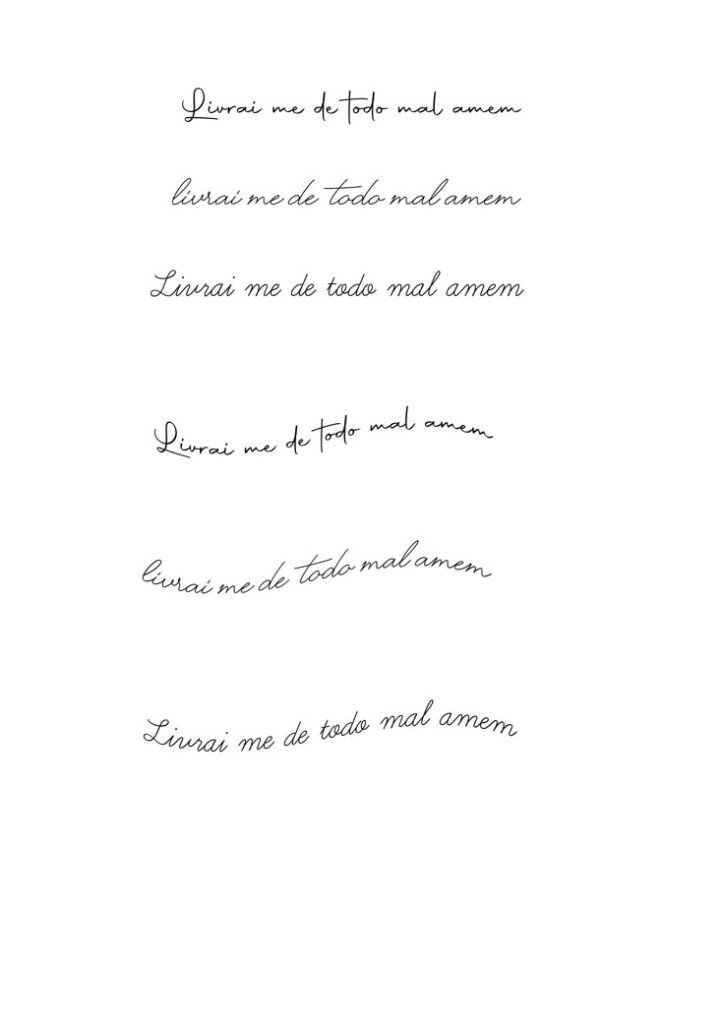 Livrai me de todo mal amem
livrai me de todo mal amem
Livrai me de todo mal amem
Livrai me de todo mal amem
livrai me de todo mal amem
Livrai me de todo mal amem